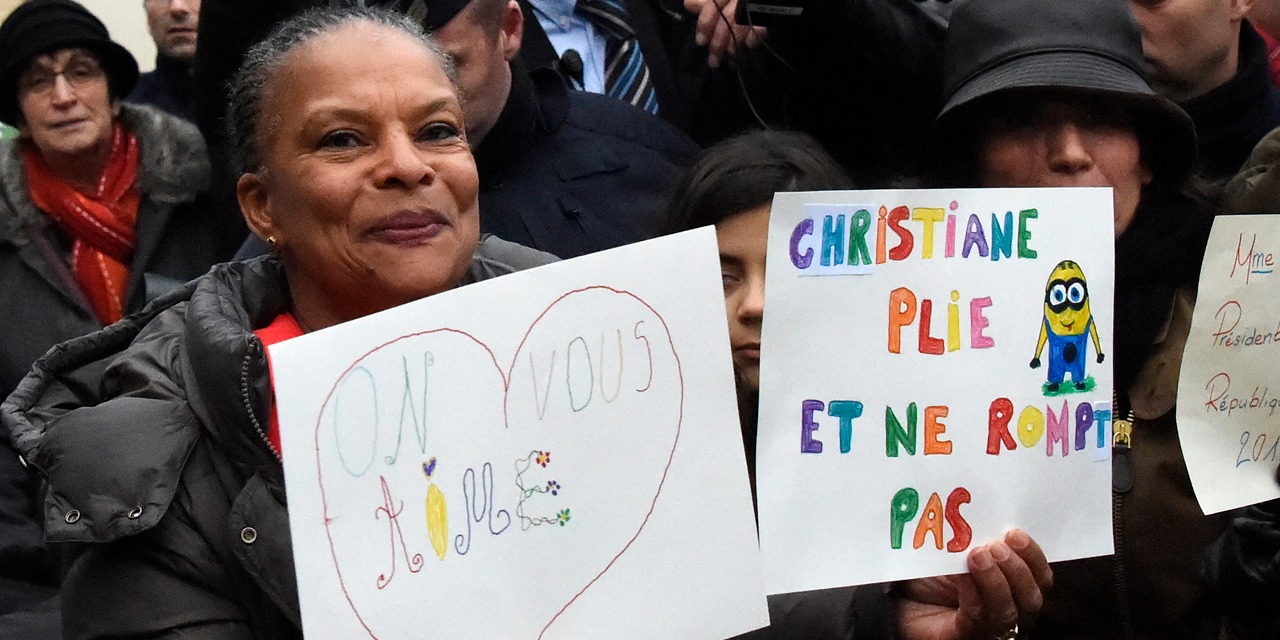 ON VOUS
AiME
CHRiSTiANE
PLiE
ET NE ROMPT
PAS
Mme
Président
République
201